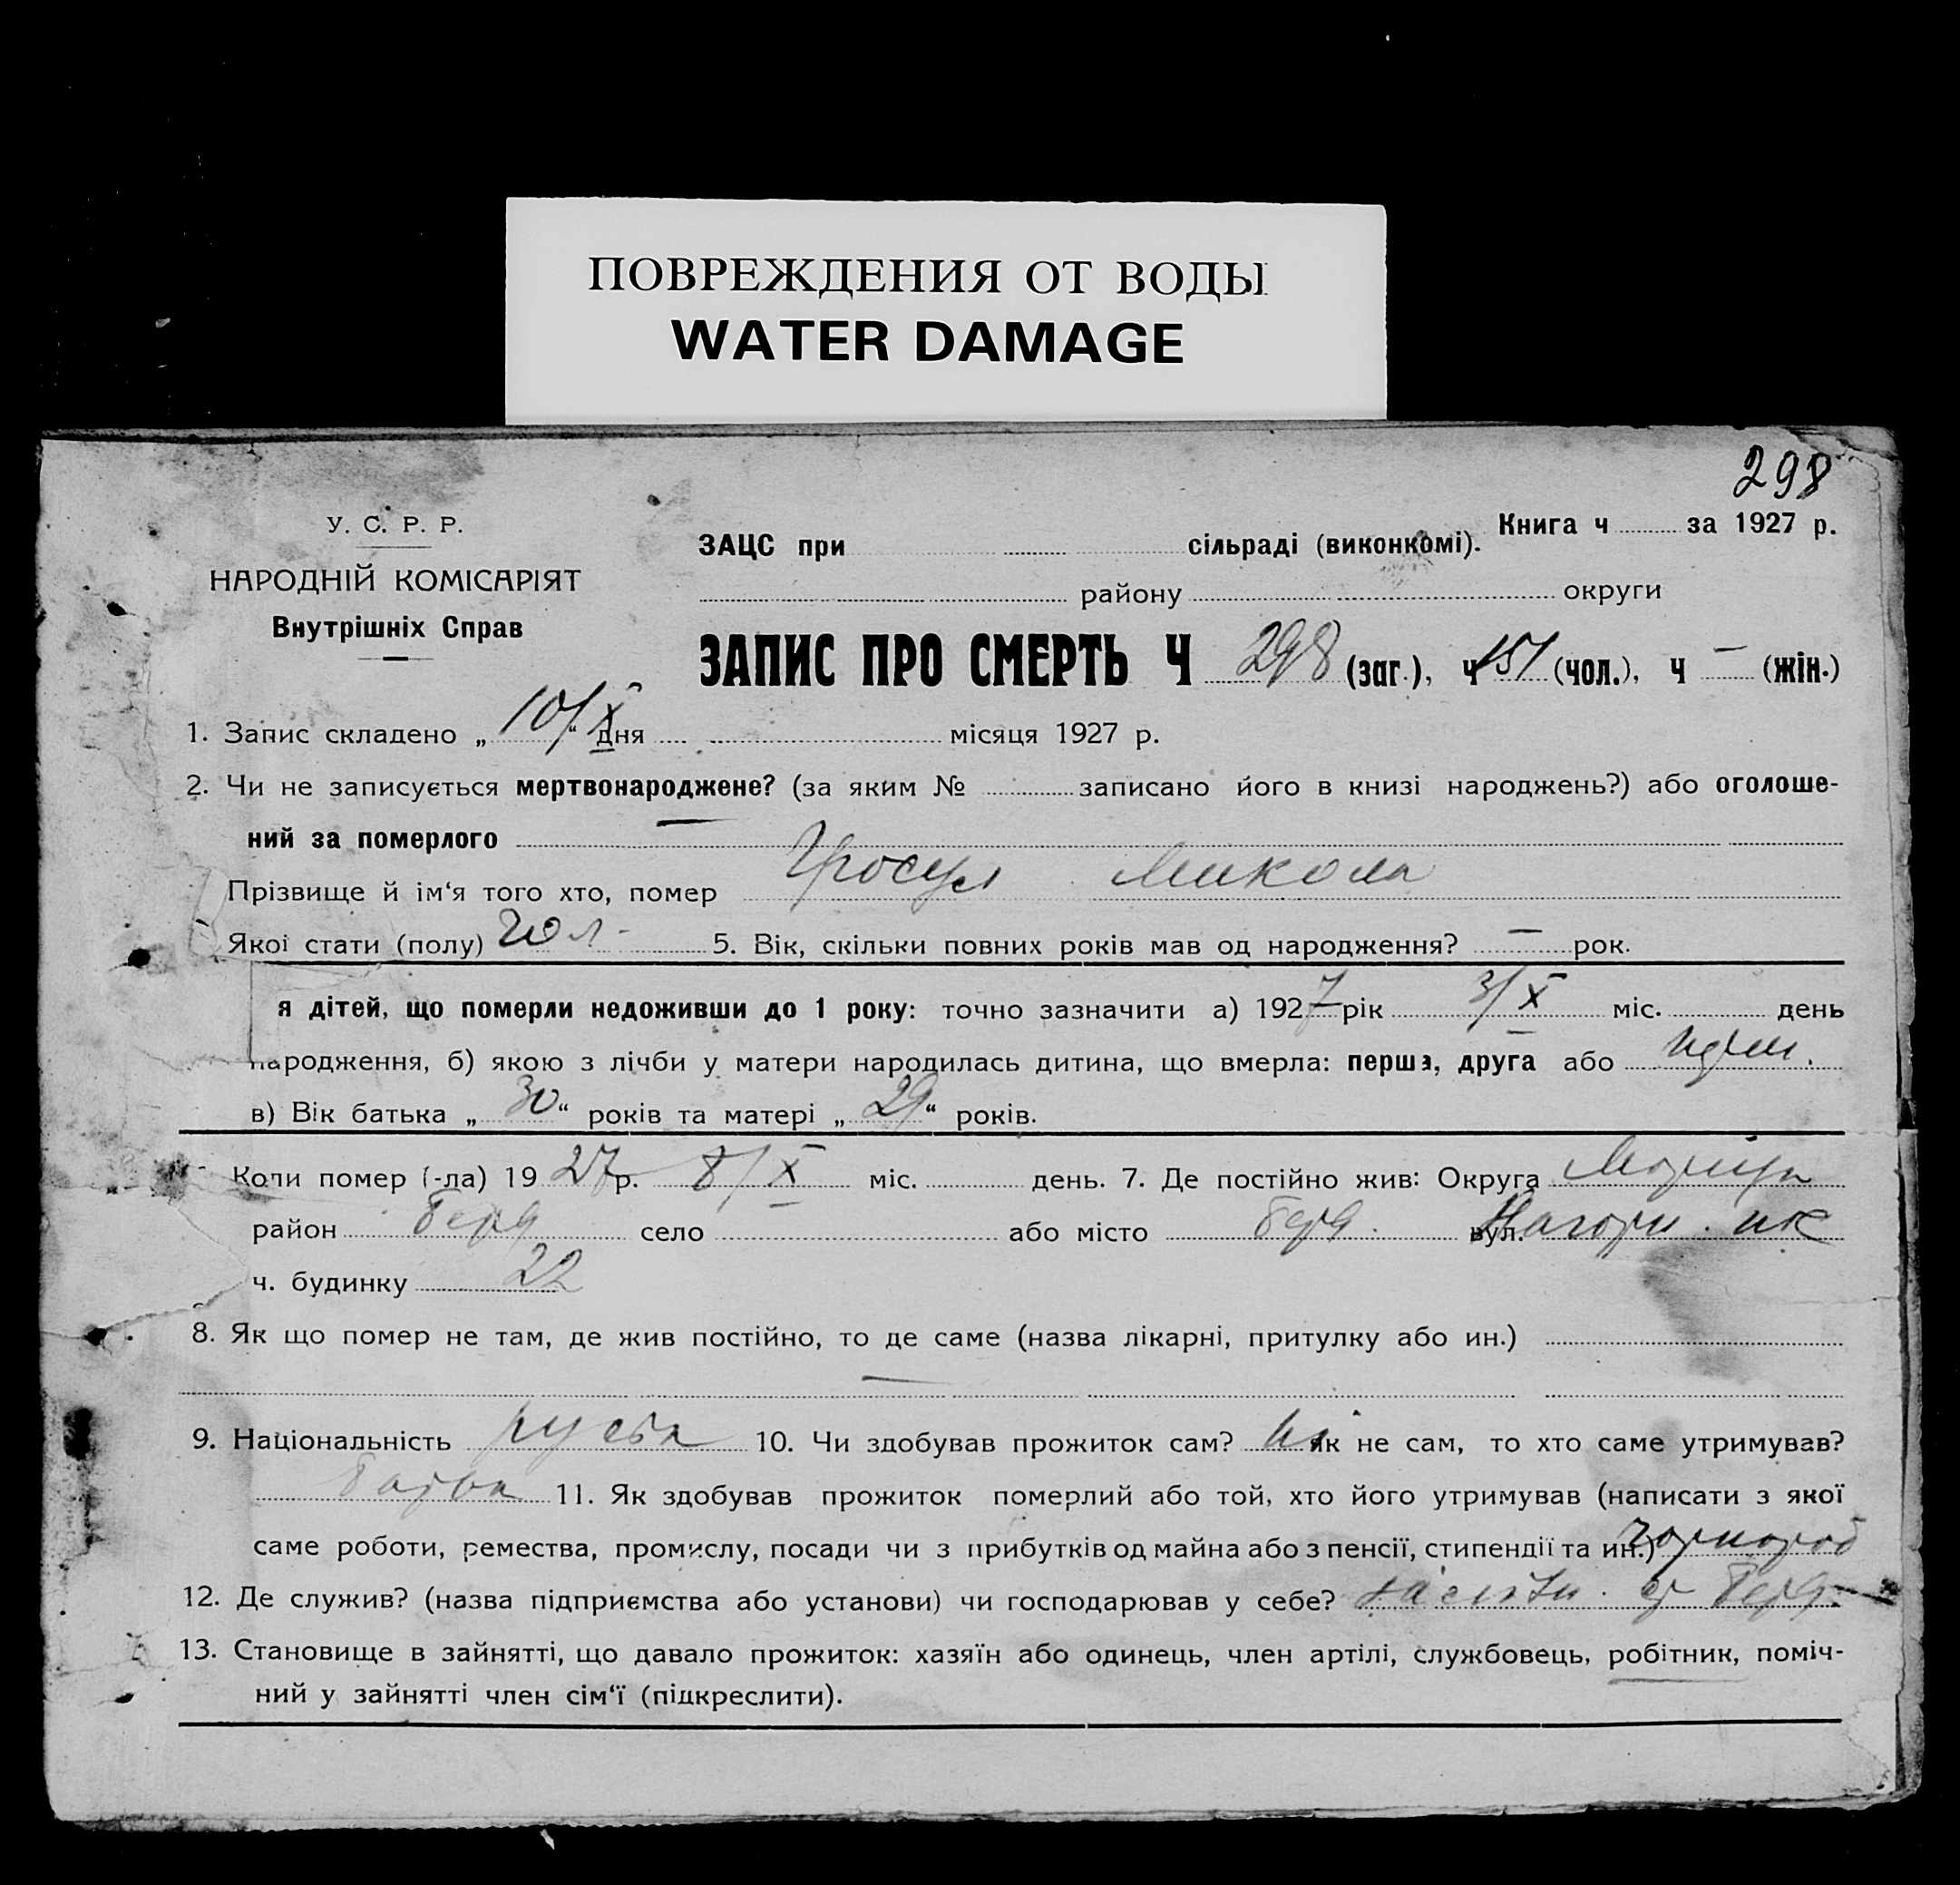 ПОВРЕЖДЕНИЯ ОТ ВОДЫ
WATER DAMAGE
298
У. С. Р. Р.
НАРОДНІЙ КОМІСАРІЯТ
Внутрішніх Справ
Книга ч за 1927 р.
ЗАЦС при сільраді (виконкомі).
району округи
ЗАПИС ПРО СМЕРТЬ Ч 298 (заг.), ч 151 (чол.), ч — (жін.)
1. Запис складено „10/X“ дня місяця 1927 р.
2. Чи не записується мертвонароджене? (за яким № записано його в книзі народжень?) або оголоше-
ний за померлого —
Прізвище й ім‘я того хто, помер Гросул Микола
Якої стати (полу) чол. 5. Вік, скільки повних років мав од народження? — рок.
я дітей, що померли недоживши до 1 року: точно зазначити а) 1927 рік 3/X міс. день
народження, б) якою з лічби у матери народилась дитина, що вмерла: перша, друга або
в) Вік батька „30“ років та матері „29“ років.
Коли помер (-ла) 1927 р. 8/X міс. день. 7. Де постійно жив: Округа
район Берд село або місто Берд. вул. Нагорн.
ч. будинку 22
8. Як що помер не там, де жив постійно, то де саме (назва лікарні, притулку або ин.)
—
9. Національність 10. Чи здобував прожиток сам? ні Як не сам, то хто саме утримував?
батько 11. Як здобував прожиток померлий або той, хто його утримував (написати з якої
саме роботи, ремества, промислу, посади чи з прибутків од майна або з пенсії, стипендії та ин.) чорнороб
12. Де служив? (назва підприємства або установи) чи господарював у себе?
13. Становище в зайнятті, що давало прожиток: хазяїн або одинець, член артілі, службовець, робітник, поміч-
ний у зайнятті член сім‘ї (підкреслити).